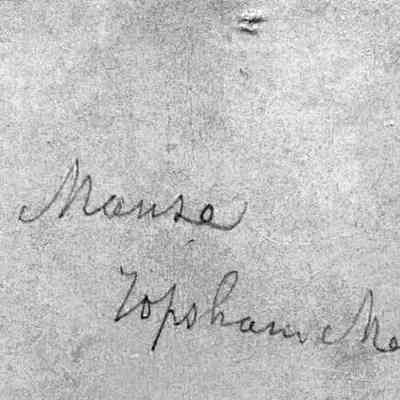 Manse
Topsham Me